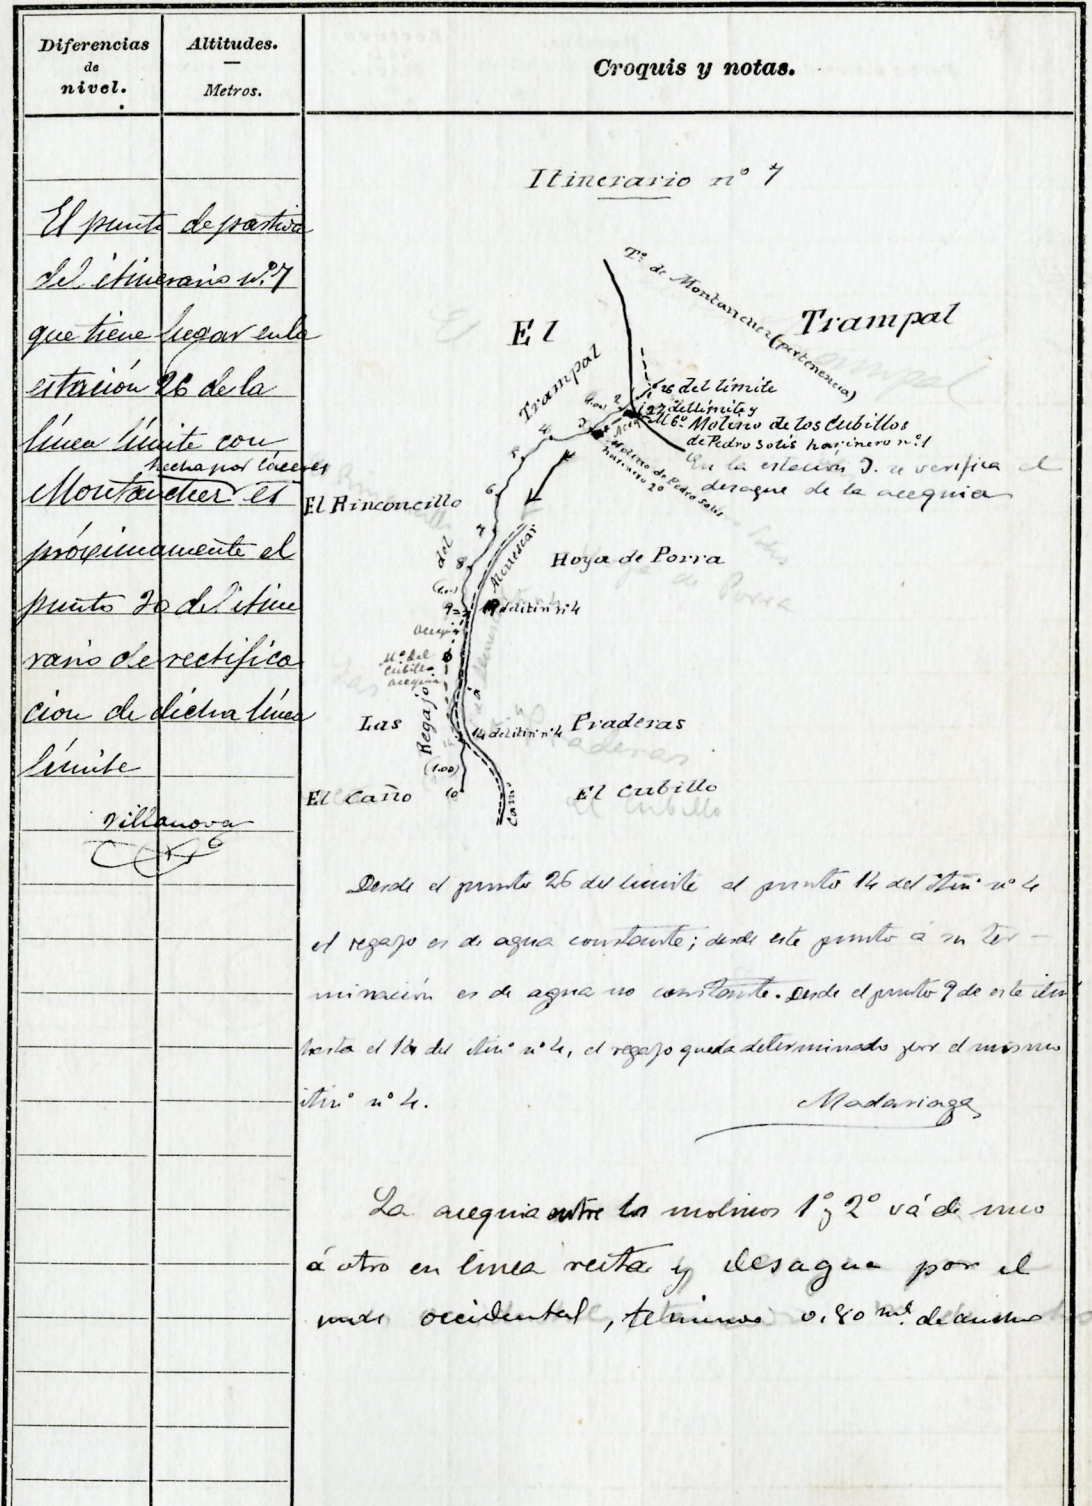 Diferencias
de
nivel.
Altitudes.
Metros.
Croquis y notas.
Itinerario nº 7
El punto de partida
del itinerario nº 7
que tiene lugar en la
estación 26 de la
línea límite con
hecha por Cáceres
Montanchez es
próximamente el
punto 20 del itine
rario de rectifica
cion de dicha línea
límite
Villanova
Tº de Montanchez (pertenencia)
El
Trampal
Trampal
26 del límite
27 del límite y
M 6º Molino de los Cubillos
de Pedro Solís harinero nº 1
En la estación 3. se verifica el
desague de la acequia
Molino de Pedro Solis
harinero 2º
2
3
4
5
6
7
8
9
El Rinconcillo
del
Alcuescar
Hoya de Porra
19 del itin nº 4
acequia
Mº del
Cubillo
acequia
Las
Regajo
14 del itin nº 4
Praderas
(1.00)
El Caño
10
Camº
El Cubillo
Desde el punto 26 del limite al punto 14 del itinº nº 4
el regajo es de agua constante; desde este punto á su ter-
minación es de agua no constante. Desde el punto 9 de este itinº
hasta el 14 del itinº nº 4, el regajo queda determinado por el mismo
itinº nº 4.
Madariaga
La acequia entre los molinos 1º y 2º vá de uno
á otro en línea recta y desagua por el
occidental, 0.80 ms. de ancho